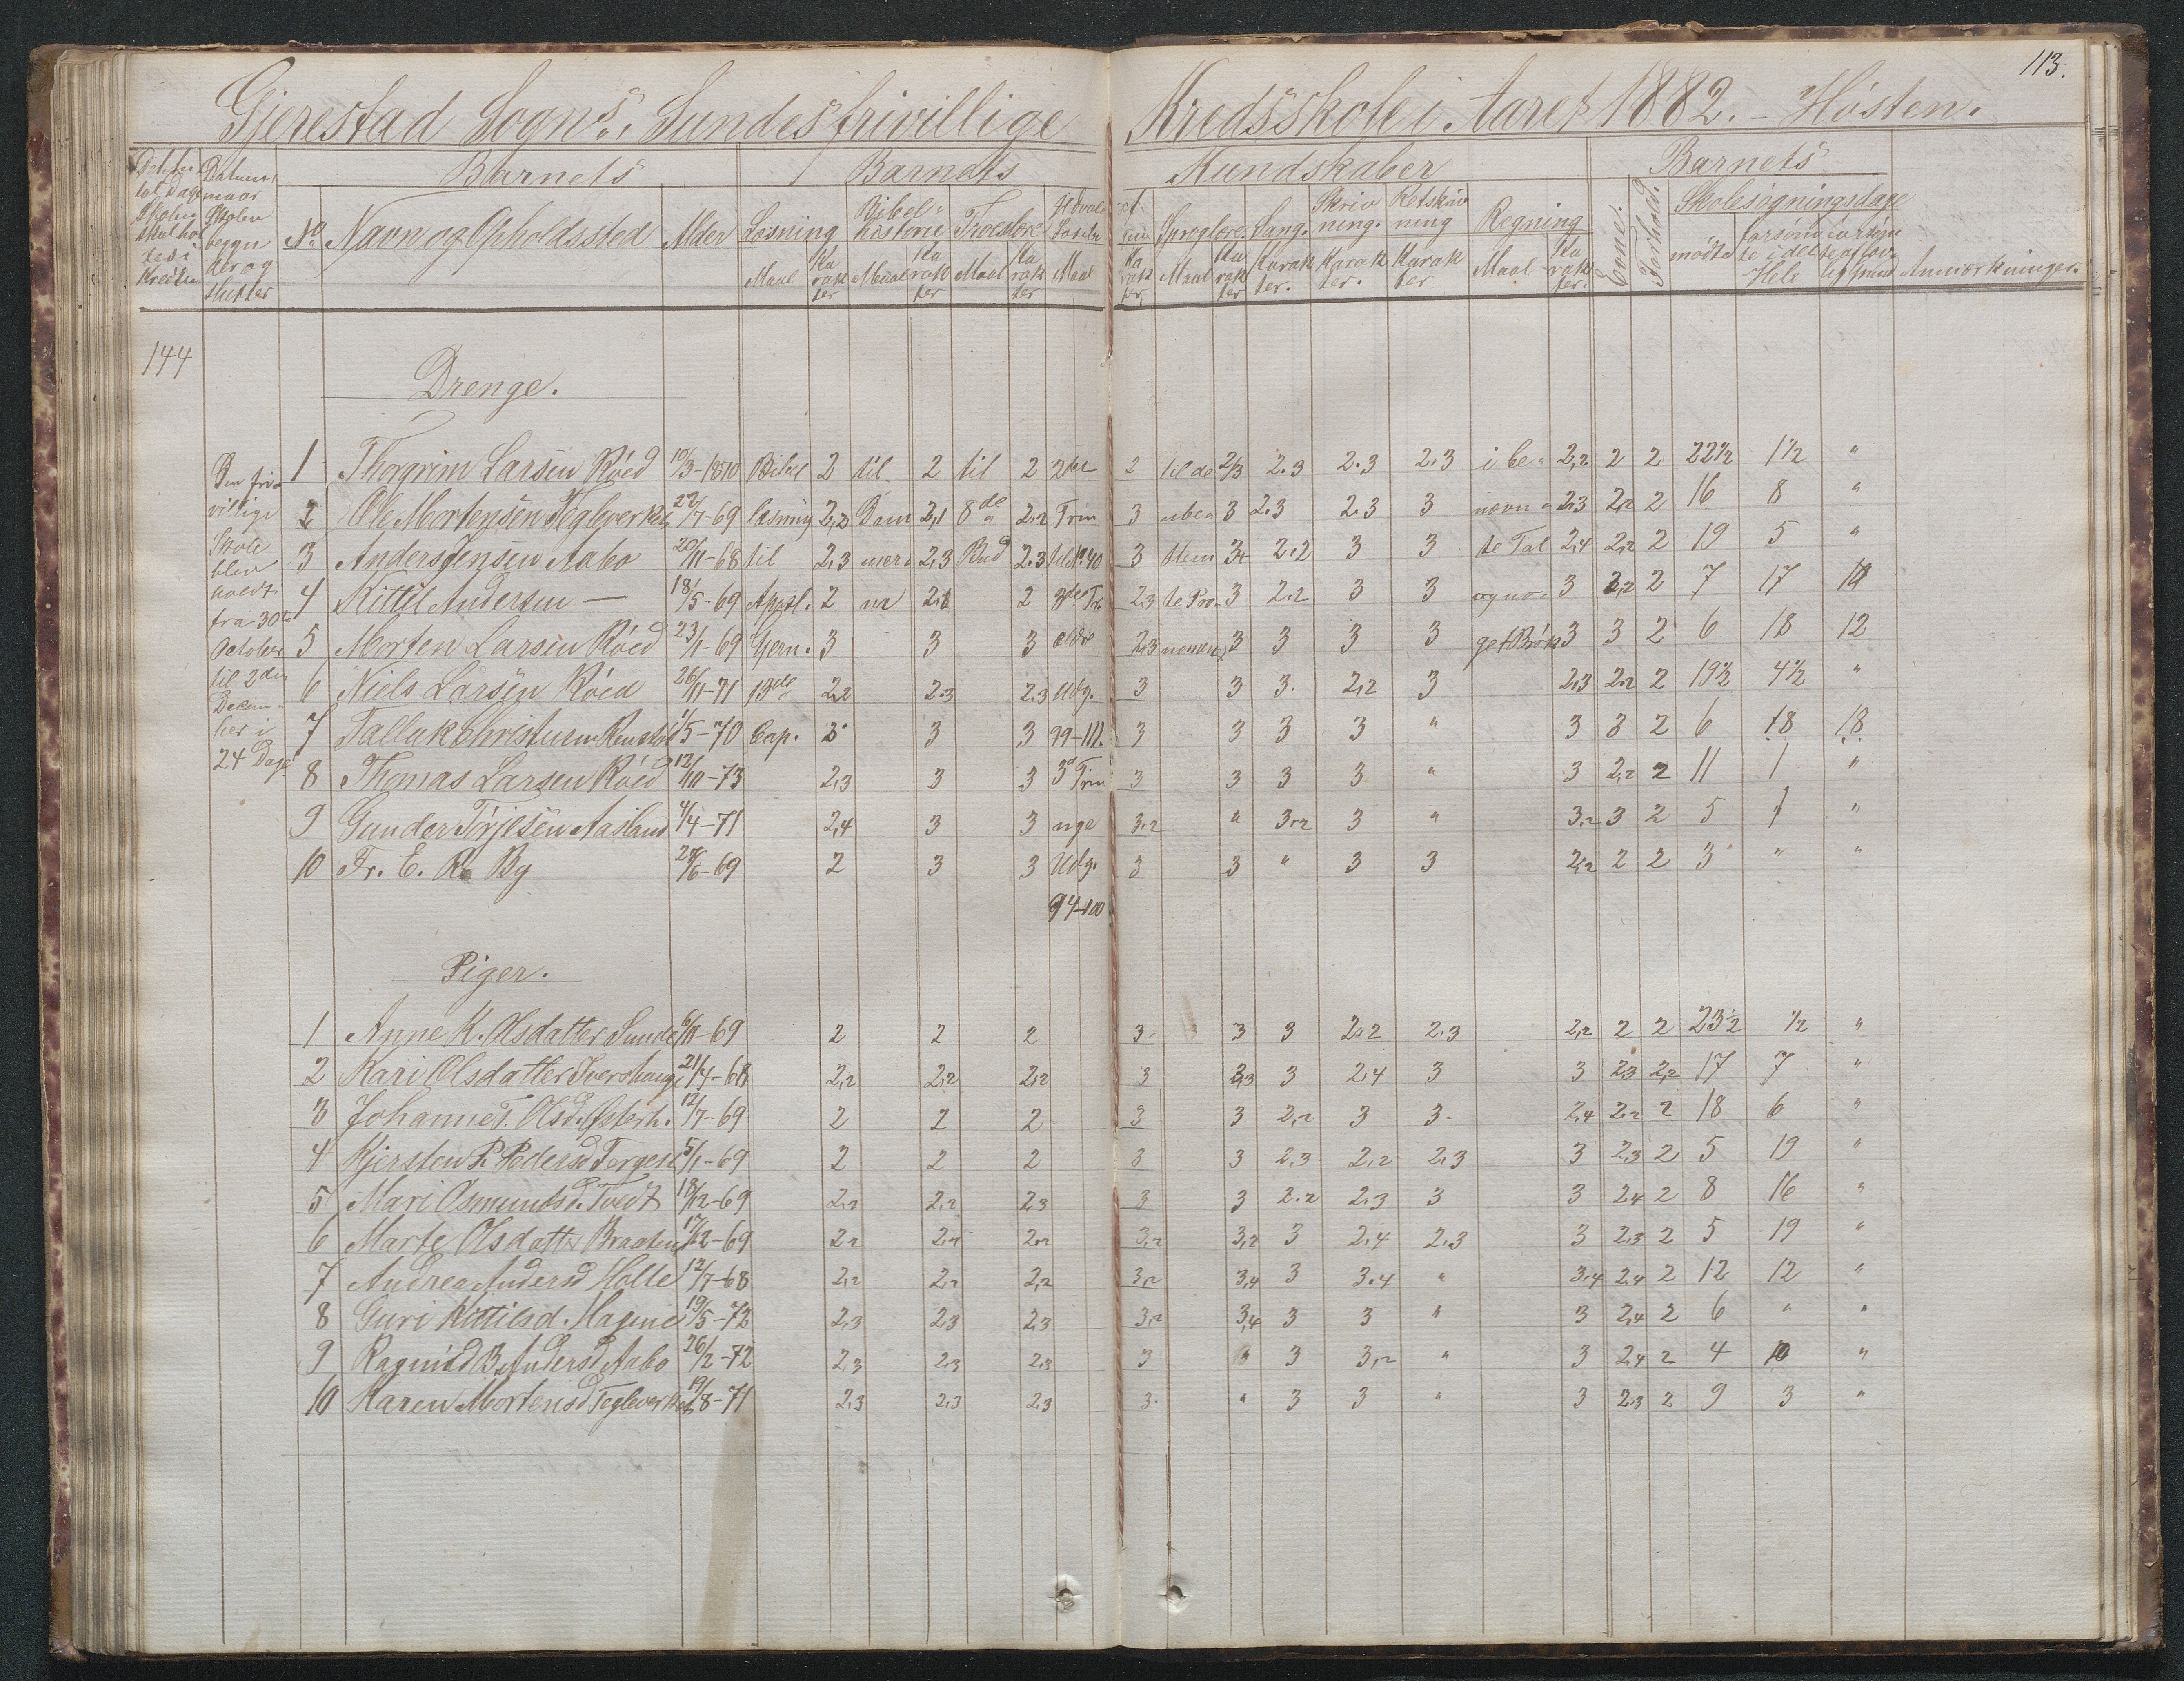 113.
Gjerestad Sogns, Sundes frivillige Kredsskole i Aaret 1882. - Hösten.
Datum naar Skolen begyn der og slutter
Barnets
Barnets Kundskaber
Barnets
No Navn og Opholdssted Alder Læsning Bibel historie Troeslære Sproglære Sang. Skriv ning. Retskriv ning Regning Evne. Forhold. Skolesøgningsdage
Maal Ka rak ter Maal Ka rak ter Maal Ka rak ter Maal Ka rak ter Maal Ka rak ter Karak ter. Karak ter. Karak ter Maal Ka rak ter. mødte forsømte i det Hele Anmærkninger.
144
Drenge.
Den fri villige Skole blev holdt fra 30te October til 2den Decem ber i 24 Dage
1 Thorgrim Larsen Röed 10/3-1870 Bibel 2 til 2 til 2 2det 2 til de 2/3 2.3 2.3 2.3 i be- 2,2 2 2 22½ 1½ "
2 Ole Mortensen Tegleverket 27/7-69 læsning 2,2 Dom 2,1 8de 2.2 Trin 3 ube- 3 2.3 2.3 3 nævn- 2.3 2,2 2 16 8 "
3 Anders Jensen Aabo 20/11-68 til 2,3 mer- 2,3 Bud 2.3 til N. 40 3 stem 3,4 2.2 3 3 te Tal 2,4 2,2 2 19 5 "
4 Kittil Andersen — 18/5-69 Apostl. 2 ne 2,1 2 3die Tr. 2.3 te Pro- 3 2.2 3 3 og no- 3 2,2 2 7 17
5 Morten Larsen Röed 23/1-69 Gjern. 3 3 3 ældre 2,3 nomen 3 3 3 3 get Brök 3 3 2 6 18 12
6 Niels Larsen Röed 26/11-71 13de 2,2 2.3 2.3 Udg. 3 3 3. 2,2 3 2,3 2.2 2 19½ 4½ "
7 Tallak Christensen 1/5-70 Cap. 3 3 3 99-111. 3 3 3 3 " 3 3 2 6 18 18
8 Thomas Larsen Röed 12/10-73 2,3 3 3 3d Trin 3 3 3 3 " 3 2,2 2 11 1 "
9 Gunder Törjesen Aasland 4/4-71 2,4 3 3 nye 3.2 " 3.2 3 " 3.2 3 2 5 1 "
10 Fr. E. R. By 29/6-69 2 3 3 Udg. 3 3 " 3 3 2,2 2 2 3 " "
94-100
Piger.
1 Anne K. Olsdatter Sunde 6/11-69 2 2 2 3. 3 3 2.2 2.3 2,2 2 2 23½ ½ "
2 Kari Olsdatter Ivershaug 21/4-68 2,2 2,2 2,2 3 2,3 3 2.4 3 3 2.3 2,2 17 7 "
3 Johanne T. Olsd. 12/7-69 2 2 2 3 3 2,2 3 3. 2,4 2.2 2 18 6 "
4 Kjersten P. Pedersd. 5/1-69 2 2 2 3 3 2,3 2,2 2,3 3 2,3 2 5 19 "
5 Mari Osmundsd. Tvedt 18/12-69 2,2 2,2 2.3 3 3 2.2 2.3 3 3 2.4 2 8 16 "
6 Marte Olsdatter Braaten 17/12-69 2,2 2,2 2,2 3,2 3,2 3 2.4 2.3 3 2.3 2 5 19 "
7 Andrea Andersd Holte 12/7-68 2,2 2,2 2,2 3,2 3,4 3 3.4 " 3.4 2.4 2 12 12 "
8 Guri Kittilsd. Hagene 19/5-72 2,3 2,3 2,3 3,2 3,4 3 3 " 3 2,4 2 6 " "
9 Ragnild B. Andersd Aabo 26/2-72 2,3 2,3 2,3 3 3 3,2 " 3 2.4 2 4 10 "
10 Karen Mortensd Tegleverket 19/8-71 2,3 2,3 2,3 3. " 3 3 " 3 2.3 2 9 3 "